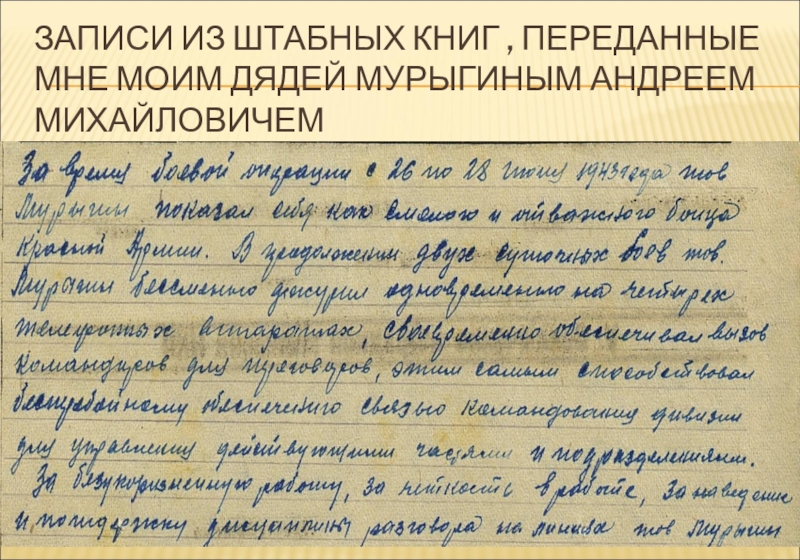 ЗАПИСИ ИЗ ШТАБНЫХ КНИГ , ПЕРЕДАННЫЕ
МНЕ МОИМ ДЯДЕЙ МУРЫГИНЫМ АНДРЕЕМ
МИХАЙЛОВИЧЕМ
За время боевой операции с 26 по 28 июня 1943 года тов
Мурыгин показал себя как смелого и отважного бойца
Красной Армии. В продолжении двух суточных боев тов.
Мурыгин бессменно дежурил одновременно на четырех
телефонных аппаратах, своевременно обеспечивал вызов
командиров для переговоров, этим самым способствовал
бесперебойному обеспечению связью командования дивизии
для управления действующими частями и подразделениями.
За безукоризненную работу, за четкость в работе, за наведение
и поддержку дисциплины разговора на линиях тов Мурыгин